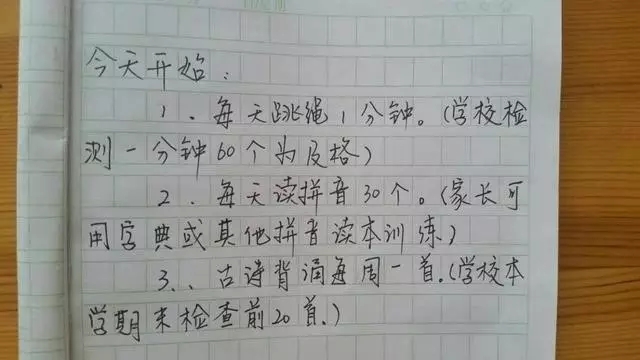 今天开始：
1、每天跳绳1分钟。(学校检
测一分钟60个为及格)
2、每天读拼音30个。(家长可
用字典或其他拼音读本训练)
3、.古诗背诵每周一首.(学校本
学期末检查前20首.)